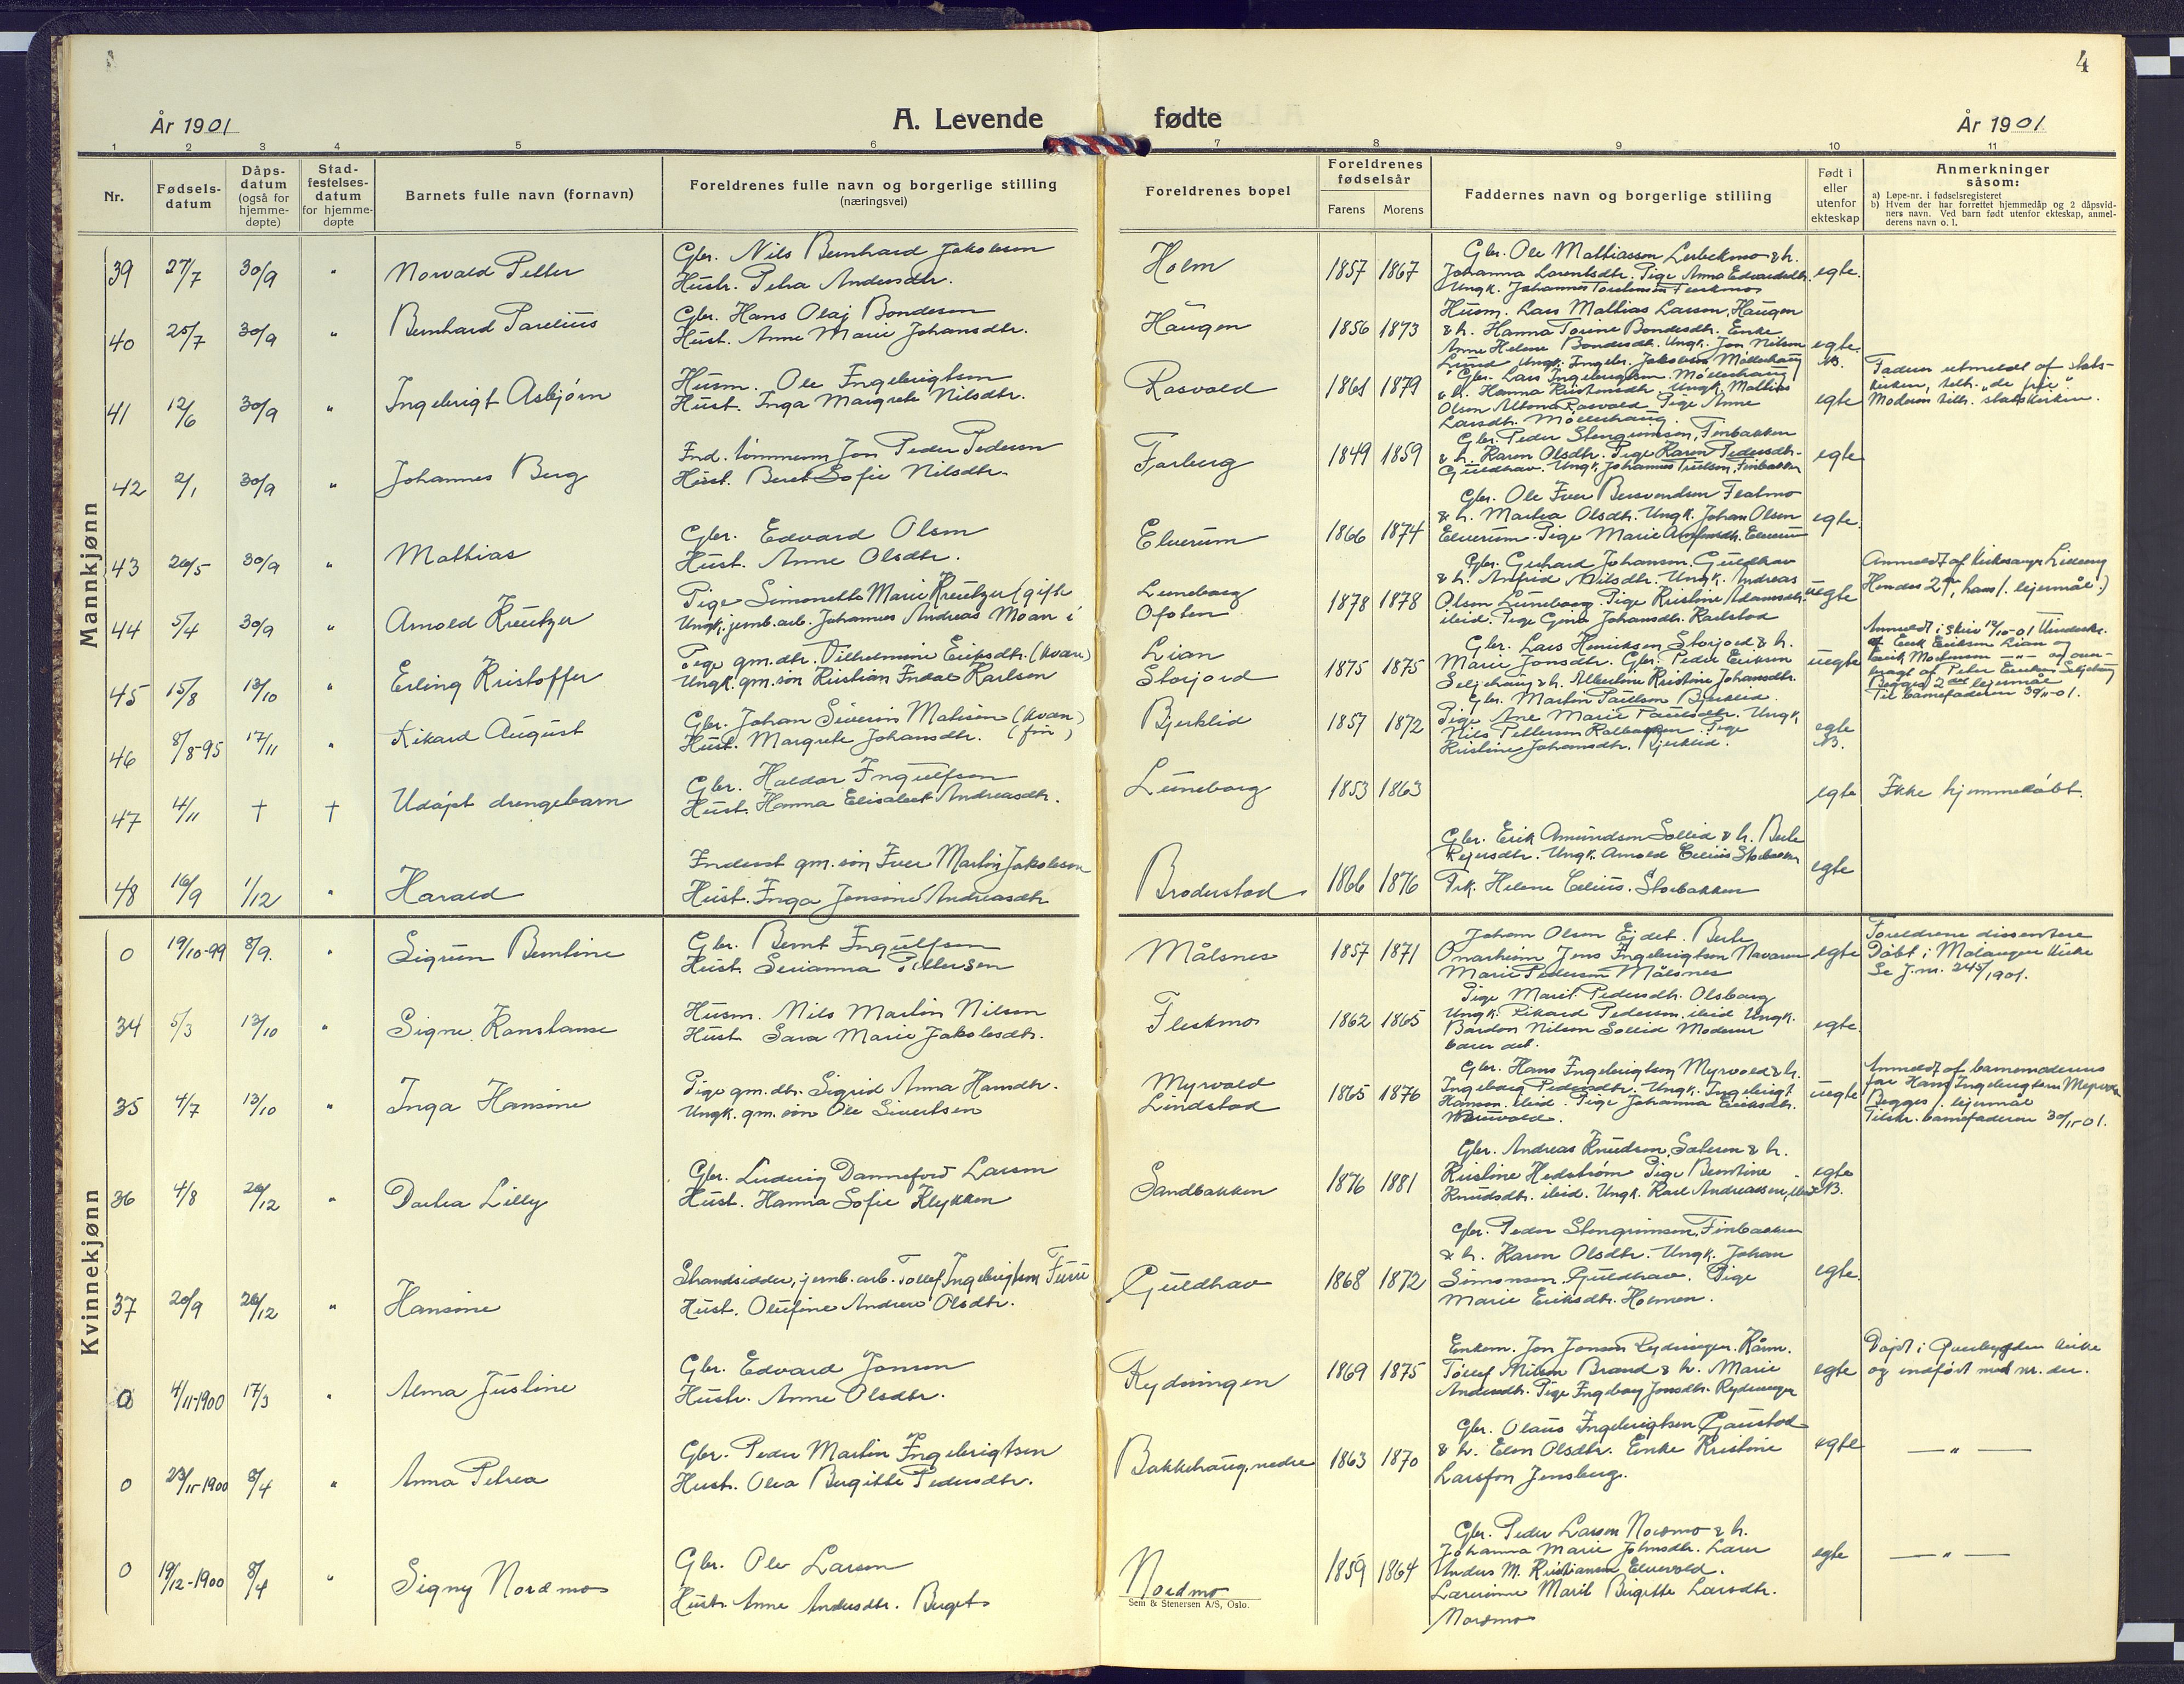 4
År 1901
A. Levende fødte
År 1901
1 2 3 4 5 6 7 8 9 10 11
Nr.
Fødsels-datum
Dåps-datum (også for hjemme-døpte)
Stad-festelses-datum for hjemme-døpte
Barnets fulle navn (fornavn)
Foreldrenes fulle navn og borgerlige stilling (næringsvei)
Foreldrenes bopel
Foreldrenes fødselsår
Farens Morens
Faddernes navn og borgerlige stilling
Født i eller utenfor ekteskap
Anmerkninger såsom:
a) Løpe-nr. i fødselsregisteret
b) Hvem der har forrettet hjemmedåp og 2 dåpsvid-
ners navn. Ved barn født utenfor ekteskap, anmel-
derens navn o. l.
Mannkjønn
39 27/7 30/9 " Norvald Petter
Gbr. Nils Bernhard Jakobsen
Hustr. Petra Andersdtr.
Holm 1857 1867
Gbr. Ole Mathiassen & h.
Johanna Larentsdtr. Pige Anna Edvardsdtr.
Ungk. Johannes
egte.
40 25/7 30/9 " Bernhard Parelius
Gbr. Hans Olaj Bondesen
Hust. Anne Marie Johansdtr.
Haugen 1856 1873
Husm. Lars Mathias Larsen, Haugen
& h. Hanna Torine Bondesdtr. Enke
Anne Helene Bondesdtr. Ungk. Jon Nilsen
Lund Ungk. Ingebr. Jakobsen Møllerhaug
egte. NB.
41 12/6 30/9 " Ingebrigt Asbjørn
Husm. Ole Ingebrigtsen
Hust. Inga Margrete Nilsdtr.
Rasvold 1861 1879
Gbr. Lars Ingebrigtsen Møllerhaug
& h. Hanna Kristensdtr. Ungk. Mathias
Olsen Rasvold Pige Anne
Larsdtr. Møllerhaug.
egte
Faderen utmeldt af stats-
kirken, tilh. "de frie".
Moderen tilh. statskirken.
42 2/1 30/9 " Johannes Berg
Ind. tømmerm. Jon Peder Pedersen
Hust. Beret Sofie Nilsdtr.
Farberg 1849 1859
Gbr. Peder Stengrimsen, Finbakken
& h. Karen Olsdtr. Pige Karen Pedersdtr.
Guldhav. Ungk. Johannes Finbakken
egte
43 26/5 30/9 " Mathias
Gbr. Edvard Olsen
Hust. Anne Olsdtr.
Elverum 1866 1874
Gbr. Ole Iver Bersvendsen
& h. Martha Olsdtr. Ungk. Johan Olsen
Elverum. Pige Marie Elverum
egte.
44 5/4 30/9 " Arnold Kreutzer
Pige Simonette Marie Kreutzer (gift
Ungk. jernb. arb. Johannes Andreas Moan i
Luneborg
Ofoten
1878 1878
Gbr. Gerhard Johansen. Guldhav
& h. Anfrid Nilsdtr. Ungk. Andreas
Olsen Luneborg. Pige Kristine Adamsdtr.
ibid. Pige Gjine Johansdtr. Karlstad
uegte
Anmeldt af Kirkesanger
Hendes 2det, hans 1. lejermål.)
45 15/8 13/10 " Erling Kristoffer
Pige gm. dtr. Vilhelmine Eriksdtr. (kvæn)
Ungk. gm. søn Kristian Indal Karlsen
Lian
Storjord
1875 1875
Gbr. Lars Henriksen Storjord & h.
Marie Jonsdtr. Gbr. Peder Eriksen
Seljehaug & h. Albertine Kristine Johansdtr.
uegte
Anmeldt i skriv 12/10-01 Underskr.
af Erik Eriksen Lian og
Erik Mortensen —"— og over-
bragt af Peter Eriksen Seljehaug
Begges 2det lejermål
Til barnefaderen 30/11-01.
46 8/8-95 17/11 " Rikard August
Gbr. Johan Severin Matisen (kvæn)
Hust. Margrete Johansdtr. (fin)
Bjerklid 1857 1872
Gbr. Morten Paulsen Bjerklid.
Pige Ane Marie Paulsdtr. Ungk.
Nils Pettersen Pige
Kristine Johansdtr. Bjerklid.
egte NB.
47 4/11 † † Udøpt drengebarn
Gbr. Haldor Ingulfsen
Hust. Hanna Elisabeth Andreasdtr.
Luneborg 1853 1863
egte
Ikke hjemmedøbt.
48 16/9 1/12 " Harald
Inderst gm. søn Iver Martin Jakobsen
Hust. Inga Jensine Andreasdtr.
Broderstad 1866 1876
Gbr. Erik Amundsen Sollid & h. Berte
Ungk. Arnold Celius Storbakken
Frk. Helene Celius. Storbakken
egte
Kvinnekjønn
0 19/10-99 8/9. " Sigrun Berntine
Gbr. Bernt Ingulfsen
Hust. Serianna Pettersen
Målsnes 1857 1871
Johan Olsen Ejdet. Berte
Jens Ingebrigtsen Navaren
Marie Pedersen Målsnes
egte
Foreldrene dissentere
Døbt i Malangen kirke
Se J.nr. 245/1901.
34 5/3 13/10 " Signe Konstanse
Husm. Nils Martin Nilsen
Hust. Sara Marie Jakobsdtr.
Fleskmo 1862 1865
Pige Marit Pedersdtr. Olsborg
Ungk. Rikard Pedersen ibid Ungk.
Bardon Nilsen Sollid Moderen
barer det.
egte.
35 4/7 13/10 " Inga Hansine
Pige gm. dtr. Sigrid Anna Hansdtr.
Ungk. gm. søn Ole Sivertsen
Myrvold
Lindstad
1865 1876
Gbr. Hans Ingebrigtsen Myrvold & h.
Ingeborg Pedersdtr. Ungk. Ingebrigt
Hansen ibid. Pige Johanna Eriksdtr.
uegte
Anmeldt af barnemoderens
far Hans Ingebrigtsen Myrvold
Begges 1. lejermål
Tilskr. barnefaderen 30/11-01.
36 4/8 26/12 " Dortea Lilly
Gbr. Ludvig Danneford Larsen
Hust. Hanna Sofie Klykken
Sandbakken 1876 1881
Gbr. Andreas Knudsen, Sæteren & h.
Kristine Hedstrøm Pige Berntine
Knudsdtr. ibid. Ungk. Karl Andreassen, ibid
egte NB.
37 20/9 26/12 " Hansine
Strandsidder, jernb. arb. Tollef Ingebrigtsen Furu
Hust. Olufine Andrea Olsdtr.
Guldhav 1868 1872
Gbr. Peder Stengrimsen, Finbakken
& h. Karen Olsdtr. Ungk. Johan
Simonsen. Guldhav. Pige
Marie Eriksdtr. Holmen.
egte.
0 4/11-1900 17/3 " Alma Justine
Gbr. Edvard Jonsen
Hustr. Anne Olsdtr.
Rydningen 1869 1875
Enkem. Jon Jonsen Rydningen. Kårm.
Tollef Nilsen Brand & h. Marie
Andersdtr. Pige Ingeborg Jonsdtr. Rydningen
egte
Døpt i Øverbygden kirke
og indført med nr. der.
0 23/11-1900 8/4 " Anna Petrea
Gbr. Peder Martin Ingebrigtsen
Hust. Olea Bergitte Pedersdtr.
Bakkehaug, nedre 1863 1870
Gbr. Olaus Ingebrigtsen Gaustad
& h. Elen Olsdtr. Enke Kristine
Larsson Jensberg.
egte
—"—
0 19/12-1900 8/4 " Signy Nordmo
Gbr. Ole Larsen
Hustr. Anne Andersdtr. Berget
Nordmo 1859 1864
Gbr. Peder Larsen Nordmo & h.
Johanna Marie Johnsdtr. Lærer
Anders M. Kristiansen Elvevold.
Lærerinne Marit Birgitte Larsdtr.
Nordmo
egte
—"—
Sem & Stenersen A/S, Oslo.